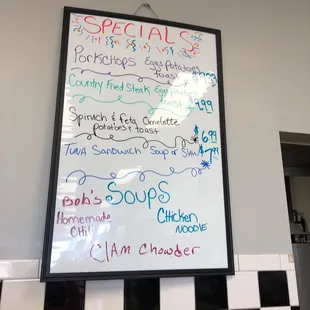 SPECIALS
Porkchops Eggs Potatoes
toast
Country Fried Steak Eggs Potatoes
toast 9.99
Spinich & Feta Omelette
Potatoes & toast $6.99
Tuna Sandwich Soup or Slaw $7.99
Bob's SOUPS
Homemade Chicken
Chili Noodle
Clam Chowder